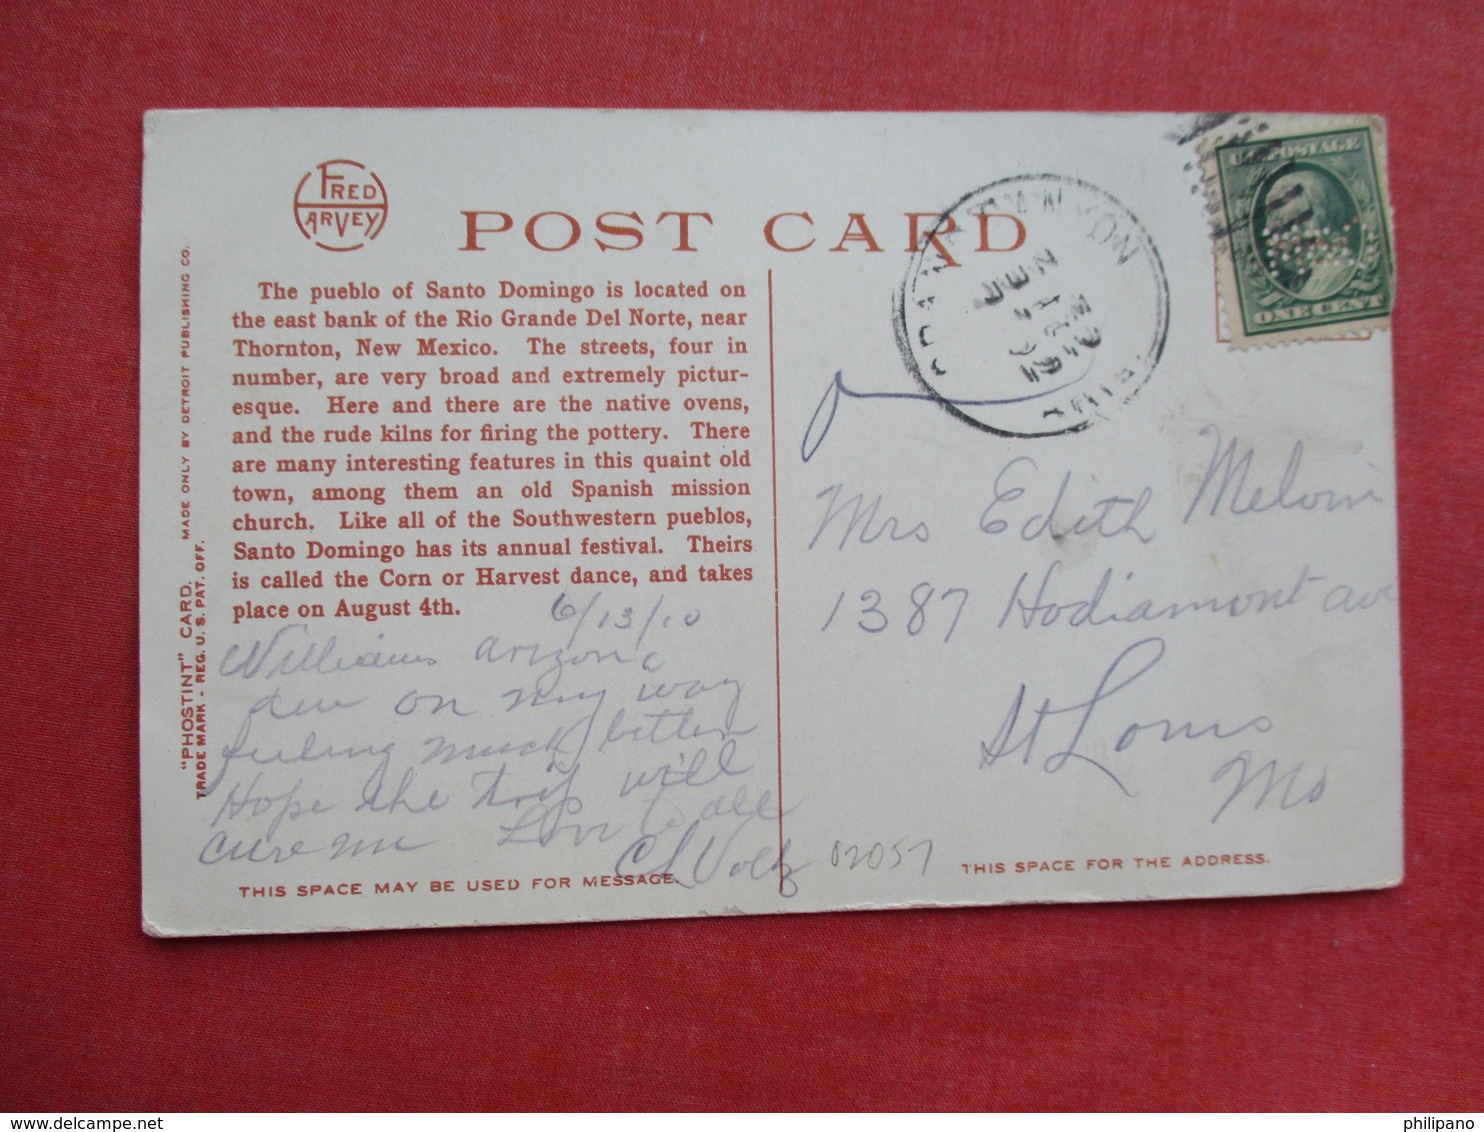 FRED
HARVEY
POST CARD
The pueblo of Santo Domingo is located on
the east bank of the Rio Grande Del Norte, near
Thornton, New Mexico. The streets, four in
number, are very broad and extremely pictur-
esque. Here and there are the native ovens,
and the rude kilns for firing the pottery. There
are many interesting features in this quaint old
town, among them an old Spanish mission
church. Like all of the Southwestern pueblos,
Santo Domingo has its annual festival. Theirs
is called the Corn or Harvest dance, and takes
place on August 4th.
6/13/10
Williams arizona
am on my way
feeling much better
Hope the trip will
cure me Love to all
CL Voltz
THIS SPACE MAY BE USED FOR MESSAGE.
"PHOSTINT" CARD. MADE ONLY BY DETROIT PUBLISHING CO.
TRADE MARK - REG. U. S. PAT. OFF.
GRAND CANYON
JUN
14
1910
ARIZ.
U.S. POSTAGE
ONE CENT
Mrs Edith Melvin
1387 Hodiamont ave
St Louis
Mo
02057
THIS SPACE FOR THE ADDRESS.
philipano